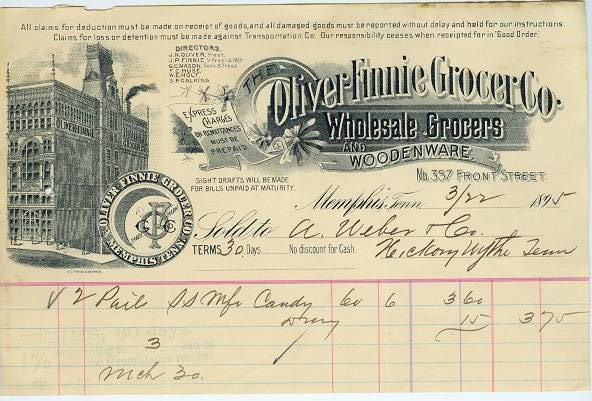 All claims for deduction must be made on receipt of goods, and all damaged goods must be reported without delay and held for our instructions.
Claims for loss or detention must be made against Transportation Co. Our responsibility ceases when receipted for in 'Good Order.'
DIRECTORS.
J.N. OLIVER, Prest.
J.P. FINNIE, V-Prest & Mgr
G.C. MASON, Secy & Treas.
F.C. HUSE.
W.E. HOLT.
S.P. CALKINS.
EXPRESS
CHARGES
ON REMITTANCES
MUST BE
PREPAID
THE
Oliver-Finnie Grocer Co.
Wholesale Grocers
AND
WOODENWARE.
No. 357 FRONT STREET.
SIGHT DRAFTS WILL BE MADE
FOR BILLS UNPAID AT MATURITY.
OLIVER FINNIE GROCER CO.
MEMPHIS, TENN.
Memphis, Tenn. 3/22 1895
Sold to A. Weber & Co.
TERMS 30 Days No discount for Cash. Hickory Wythe Tenn
2 Pails SS Mfr Candy 60 6 3 60
Dray 15 3 75
3
Mch 30.
30 days.